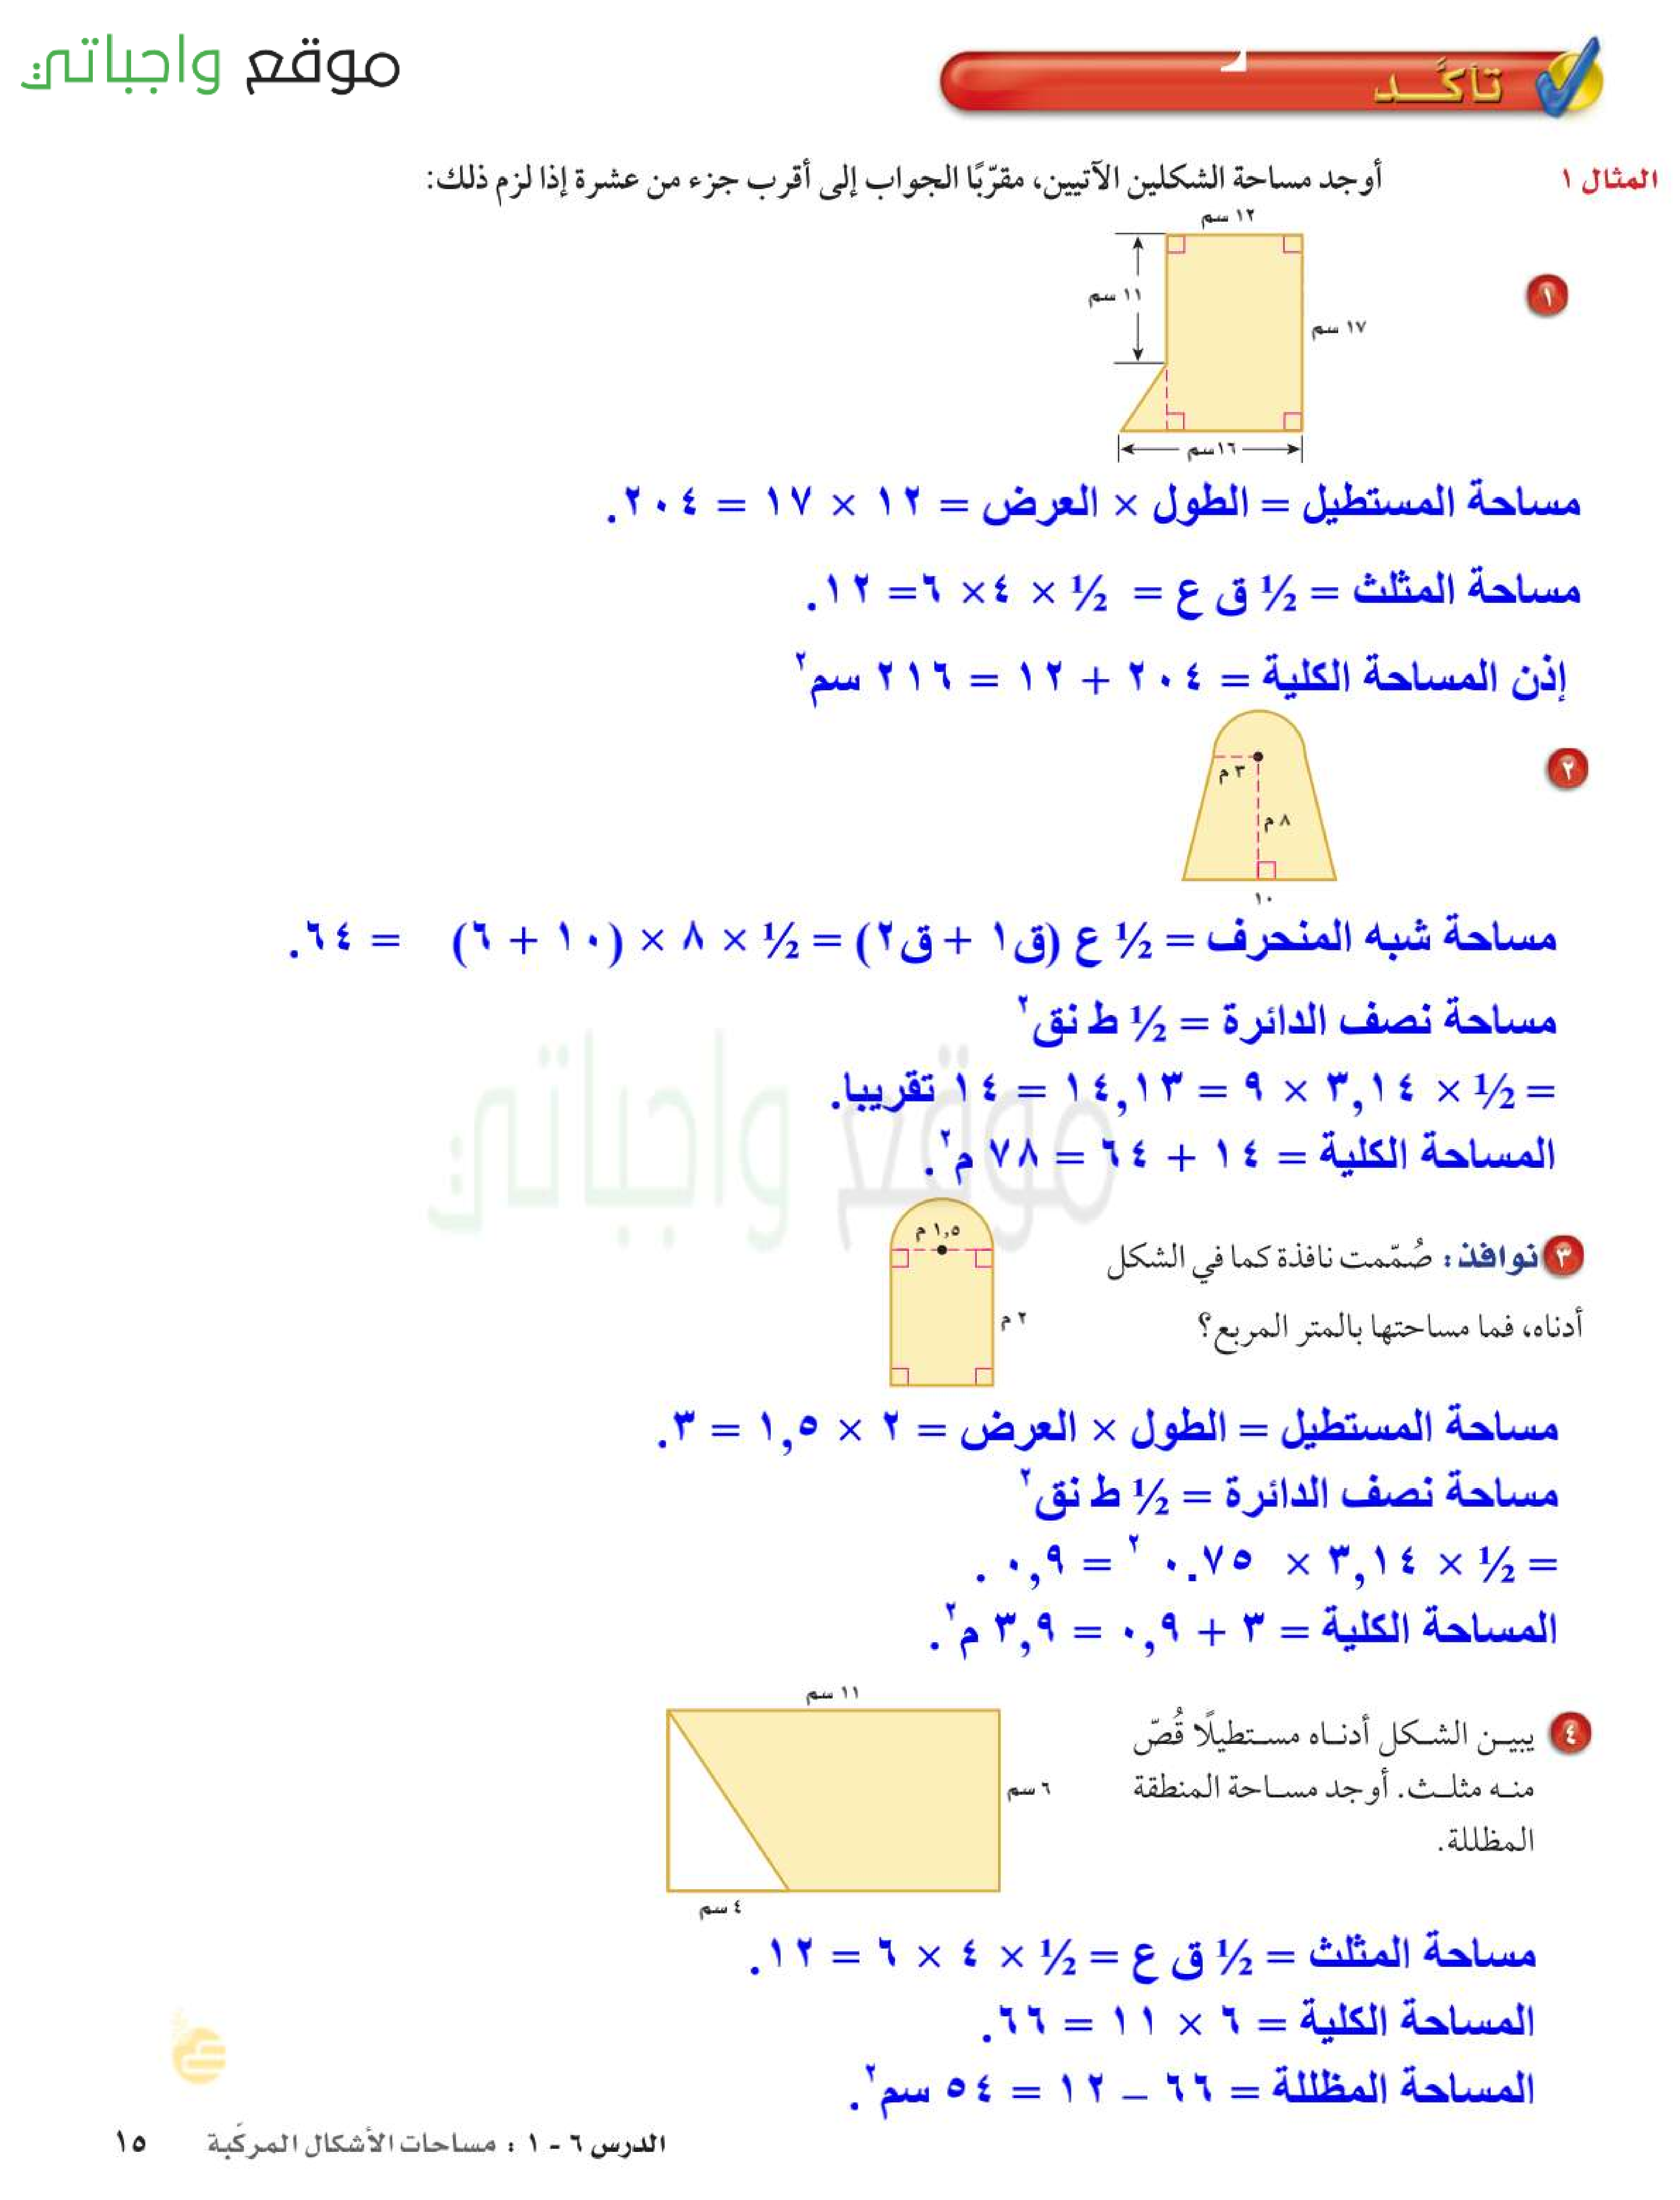 موقع واجباتي
تأكّد
المثال ١
أوجد مساحة الشكلين الآتيين، مقرّبًا الجواب إلى أقرب جزء من عشرة إذا لزم ذلك:
١٢ سم
١
١١ سم
١٧ سم
١٦سم
مساحة المستطيل = الطول × العرض = ١٢ × ١٧ = ٢٠٤.
مساحة المثلث = ½ ق ع = ½ × ٤× ٦= ١٢.
إذن المساحة الكلية = ٢٠٤ + ١٢ = ٢١٦ سم٢
٢
٣ م
٨ م
١٠
مساحة شبه المنحرف = ½ ع (ق١ + ق٢) = ½ × ٨ × (١٠ + ٦) = ٦٤.
مساحة نصف الدائرة = ½ ط نق٢
= ½ × ٣,١٤ × ٩ = ١٤,١٣ = ١٤ تقريبا.
المساحة الكلية = ١٤ + ٦٤ = ٧٨ م٢.
موقع واجباتي
٣ نوافذ: صُمّمت نافذة كما في الشكل
أدناه، فما مساحتها بالمتر المربع؟
١,٥ م
٢ م
مساحة المستطيل = الطول × العرض = ٢ × ١,٥ = ٣.
مساحة نصف الدائرة = ½ ط نق٢
= ½ × ٣,١٤ × ٠.٧٥ ٢ = ٠,٩ .
المساحة الكلية = ٣ + ٠,٩ = ٣,٩ م٢.
٤ يبين الشكل أدناه مستطيلًا قُصّ
منه مثلث. أوجد مساحة المنطقة
المظللة.
١١ سم
٦ سم
٤ سم
مساحة المثلث = ½ ق ع = ½ × ٤ × ٦ = ١٢.
المساحة الكلية = ٦ × ١١ = ٦٦.
المساحة المظللة = ٦٦ – ١٢ = ٥٤ سم٢.
الدرس ٦ - ١ : مساحات الأشكال المركّبة ١٥